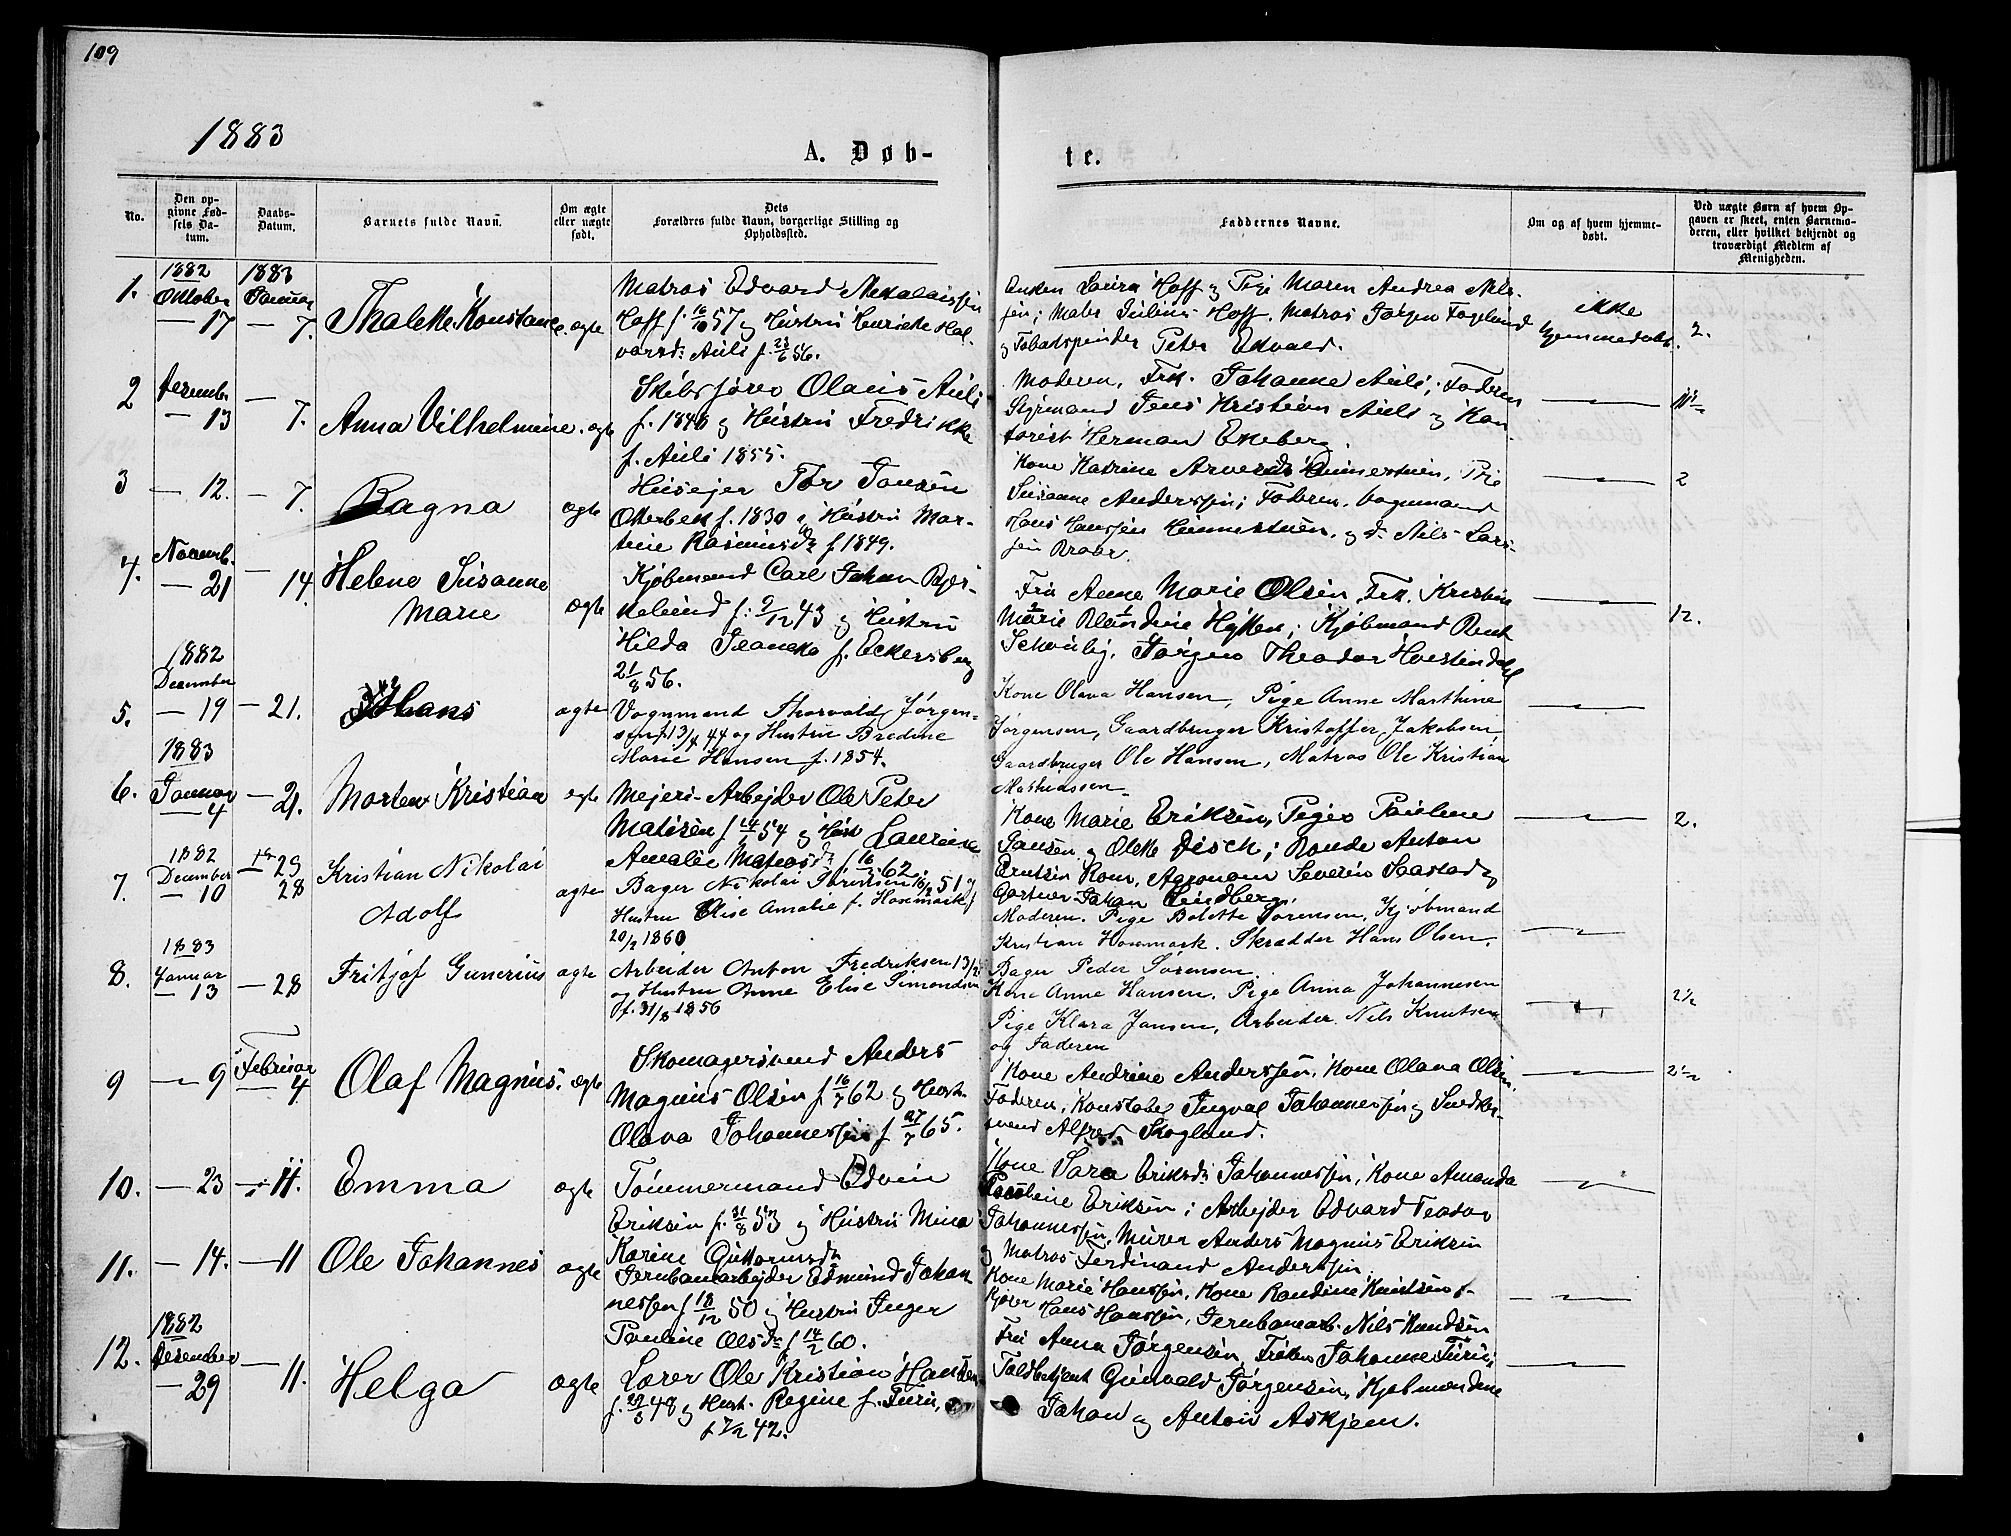 109
1883
A. Døb-
te.
No.
Den op-
givne Fød-
sels Da-
tum.
Daabs-
Datum.
Barnets fulde Navn.
Om ægte
eller uægte
født.
Dets
Forældres fulde Navn, borgerlige Stilling og
Opholdssted.
Faddernes Navne.
Om og af hvem hjemme-
døbt.
Ved uægte Børn af hvem Op-
gaven er skeet, enten Barnemo-
deren, eller hvilket bekjendt og
troværdigt Medlem af
Menigheden.
1.
1882
Oktober
— 17
1883
Januar
— 7.
Thalette Konstance
ægte
Matros Edvard Nekolaissen
Hoff f. 16/10 57 og Hustru Henrikke Hal-
vorsd: Auli f. 56.
Enken Laura Hoff og Pige Maren Andrea Nils-
sen; Julius Hoff, Matros Jørgen Fogelund
og Peter Edvald.
ikke
hjemmedøbt.
2.
2
Desemb.
— 13
— 7.
Anna Vilhelmine.
ægte
Skibsfører Olaus Auli
f. 1848 og Hustru Fredrikke
f. Auli 1855.
Moderen, Frk. Johanne Auli; Faderen
Styrmand Jens Kristian Auli og Kon-
torist Herman Ekeberg.
3
— 12.
— 7.
Ragna
ægte
Huseier Tor Jansen
Otterbek f. 1830 og Hustru Mar-
tine Rasmusdr f. 1849.
Kone Katrine Pige
Susanne Anderssen; Faderen, Vognmand
Hans Hanssen og d: Nils Lars-
sen Braar.
2
4.
Novemb.
— 21
— 14.
Helene Susanne
Marie
ægte
Kjøbmand Carl Johan Bjør-
nelund f. 9/12 43 og Hustru
Hilda f. Eckersberg
21/8 56.
Fru Anne Marie Olsen, Frk. Kristine
Marie Blandine Kjøbmand
Jørgen Theodor
12.
5.
1882
December
— 19
— 21.
Hans
ægte
Vognmand Thorvald Jørgen-
sen f. 13/4 44 og Hustru Bredine
Marie Hansen f. 1854.
Kone Olava Hansen, Pige Anne Marthine
Jørgensen, Gaardbruger Kristoffer Jakobsen,
Gaardbruger Ole Hansen, Matros Ole Kristian
Mathiassen
6.
1883
Januar
— 4
— 21.
Morten Kristian
ægte
Mejeri-Arbejder Ole Peter
Matisen f. 14/ 54 og Hust Laurine
Amalie Matrosdr f. 16/ 62.
Kone Marie Eriksen, Piger Pauline
Jansen og Oleke Disch; Bonde Anton
Eriksen Rom, Agronom Severin Saastad og
Gartner Johan Lindberg.
2.
7.
1882
December
— 10
— 28
Kristian Nikolai
Adolf
ægte
Bager Nikolai Sørensen 16/2 51 og
Hustru Elise Amalie f. Hosmark f
20/2 1860
Moderen. Pige Bolette Sørensen, Kjøbmand
Kristian Hosmark. Skrædder Hans Olsen.
Bager Peder Sørensen.
8.
1883
Januar
— 13
— 28
Fritjof Gunerius
ægte
Arbeider Anton Fredriksen
og Hustru Anne Elise Simonsen
f. 31/8 1856
Kone Anne Hansen. Pige Anna Johannesen
Pige Klara Jansen, Arbeider. Nils Knutsen
og Faderen
2 1/2
9
— 9
Februar
— 4.
Olaf Magnus.
ægte
Skomagersvend Anders
Magnus Olsen f 16/7 62 og Hust.
Olava Johannessen f 27/7 65.
Kone Andrine Anderssen, Kone Olava Olsen.
Faderen, Konstabel Ingval Johannessen og Snedker-
svend Alfred Skogland.
2 1/2
10.
— 23
— 11.
Emma
ægte
Tømmermand Edvin
Eriksen f. 31/8 53 og Hustru Mina
Karine Guttormsdr
Kone Sara Eriksdr Johannessen, Kone Amanda
Eriksen; Arbejder Edvard Teodor
Johannessen, Murer Anders Magnus Eriksen
og Matros Ferdinand Anderssen.
11.
— 14.
— 11
Ole Johannes
ægte
Jernbanearbejder Edmund Johan
nessen f 18/12 50 og Hustru Inger
Pauline Olsdr f 14/2 60.
Kone Marie Hanssen, Kone Randine Knutsen,
Kjører Hans Hanssen, Jernbanearb. Nils Knudsen
12.
1882
Desember
— 29
— 11.
Helga
ægte
Lærer Ole Kristian Hansen
f. 48 og Hust. Regine f. Furu,
f 7/2 42.
Fru Anna Jørgensen, Frøken Johanne Furu,
Toldbetjent Grünvald Jørgensen, Kjøbmændene
Johan og Anton Askjem.